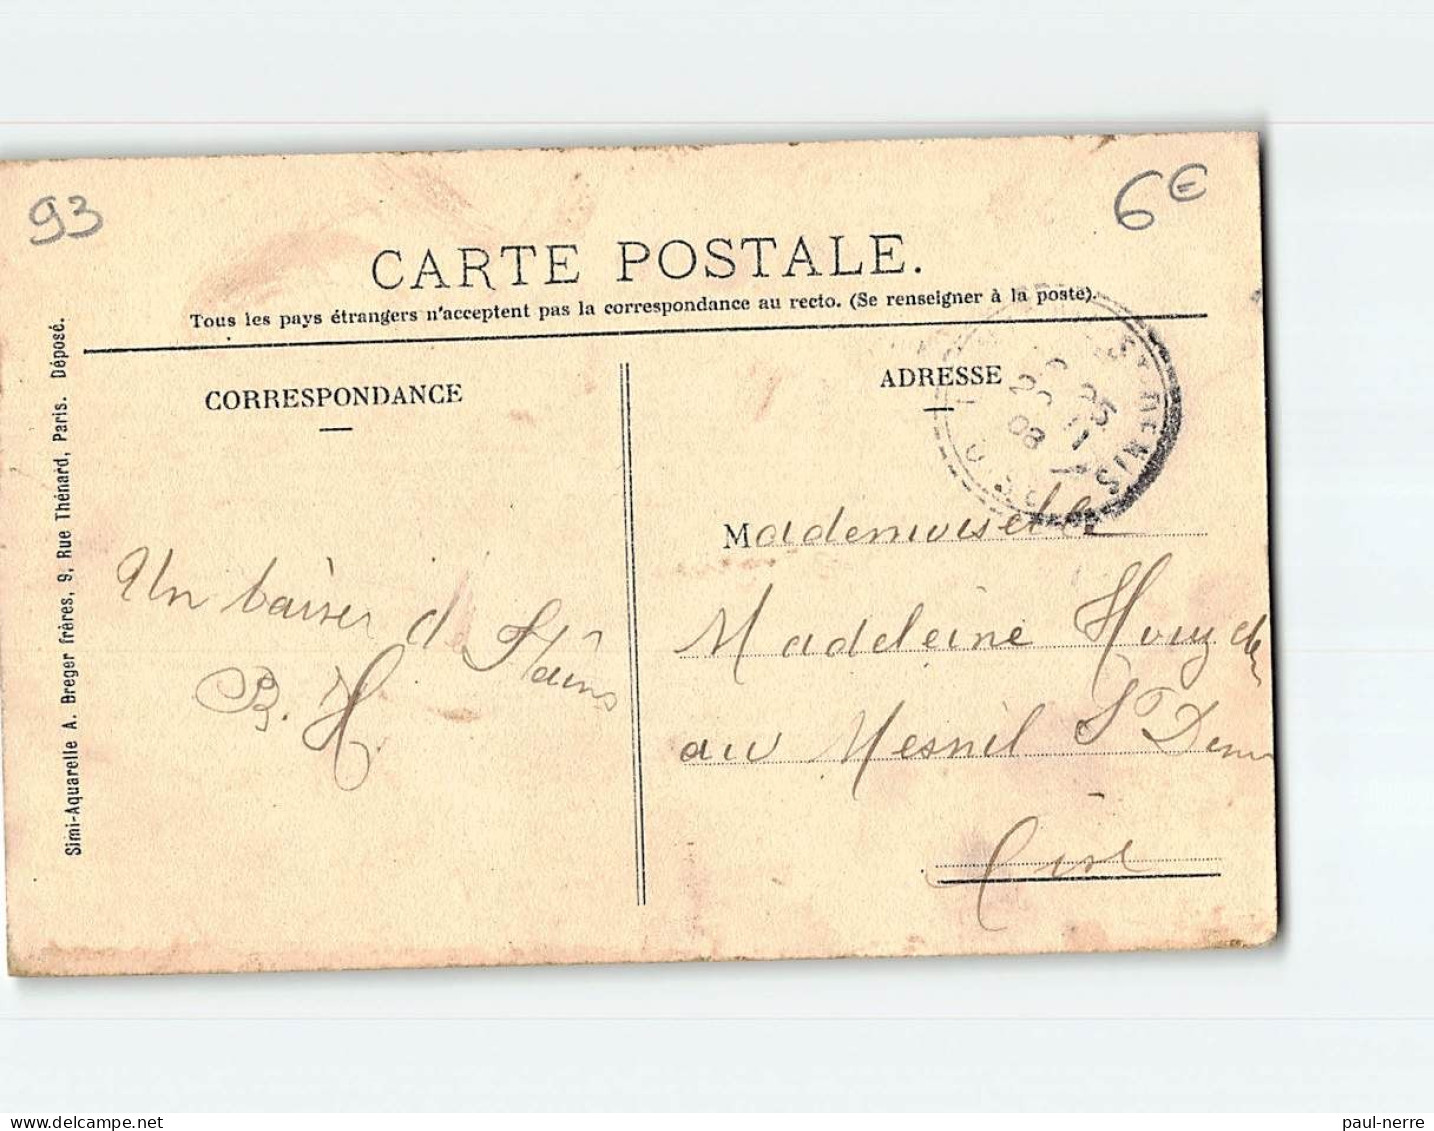 93
6€
CARTE POSTALE.
Tous les pays étrangers n'acceptent pas la correspondance au recto. (Se renseigner à la poste).
Simi-Aquarelle A. Breger frères, 9, Rue Thénard, Paris. Déposé.
CORRESPONDANCE
Un baiser d
Stains
B. H.
ADRESSE
ST DENIS
OISE
08
Mademoiselle
Madeleine
au Mesnil St Denis
Oise
paul-nerre